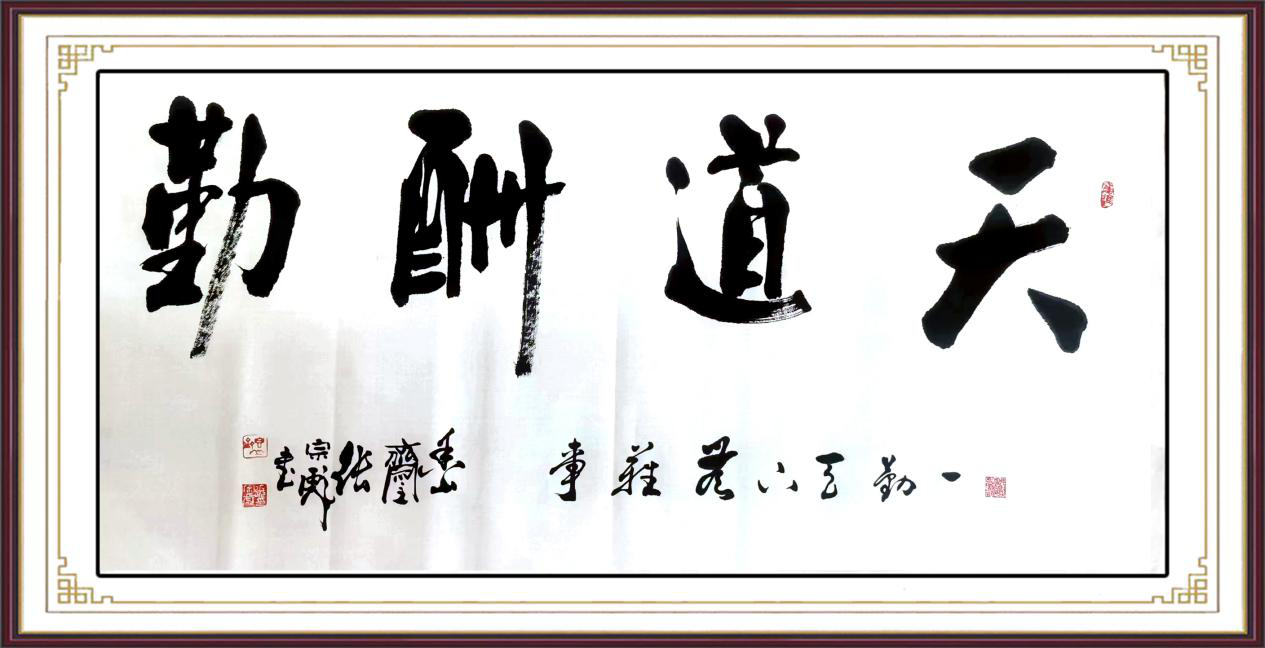 天道酬勤
一勤天下無難事
齋張宗書